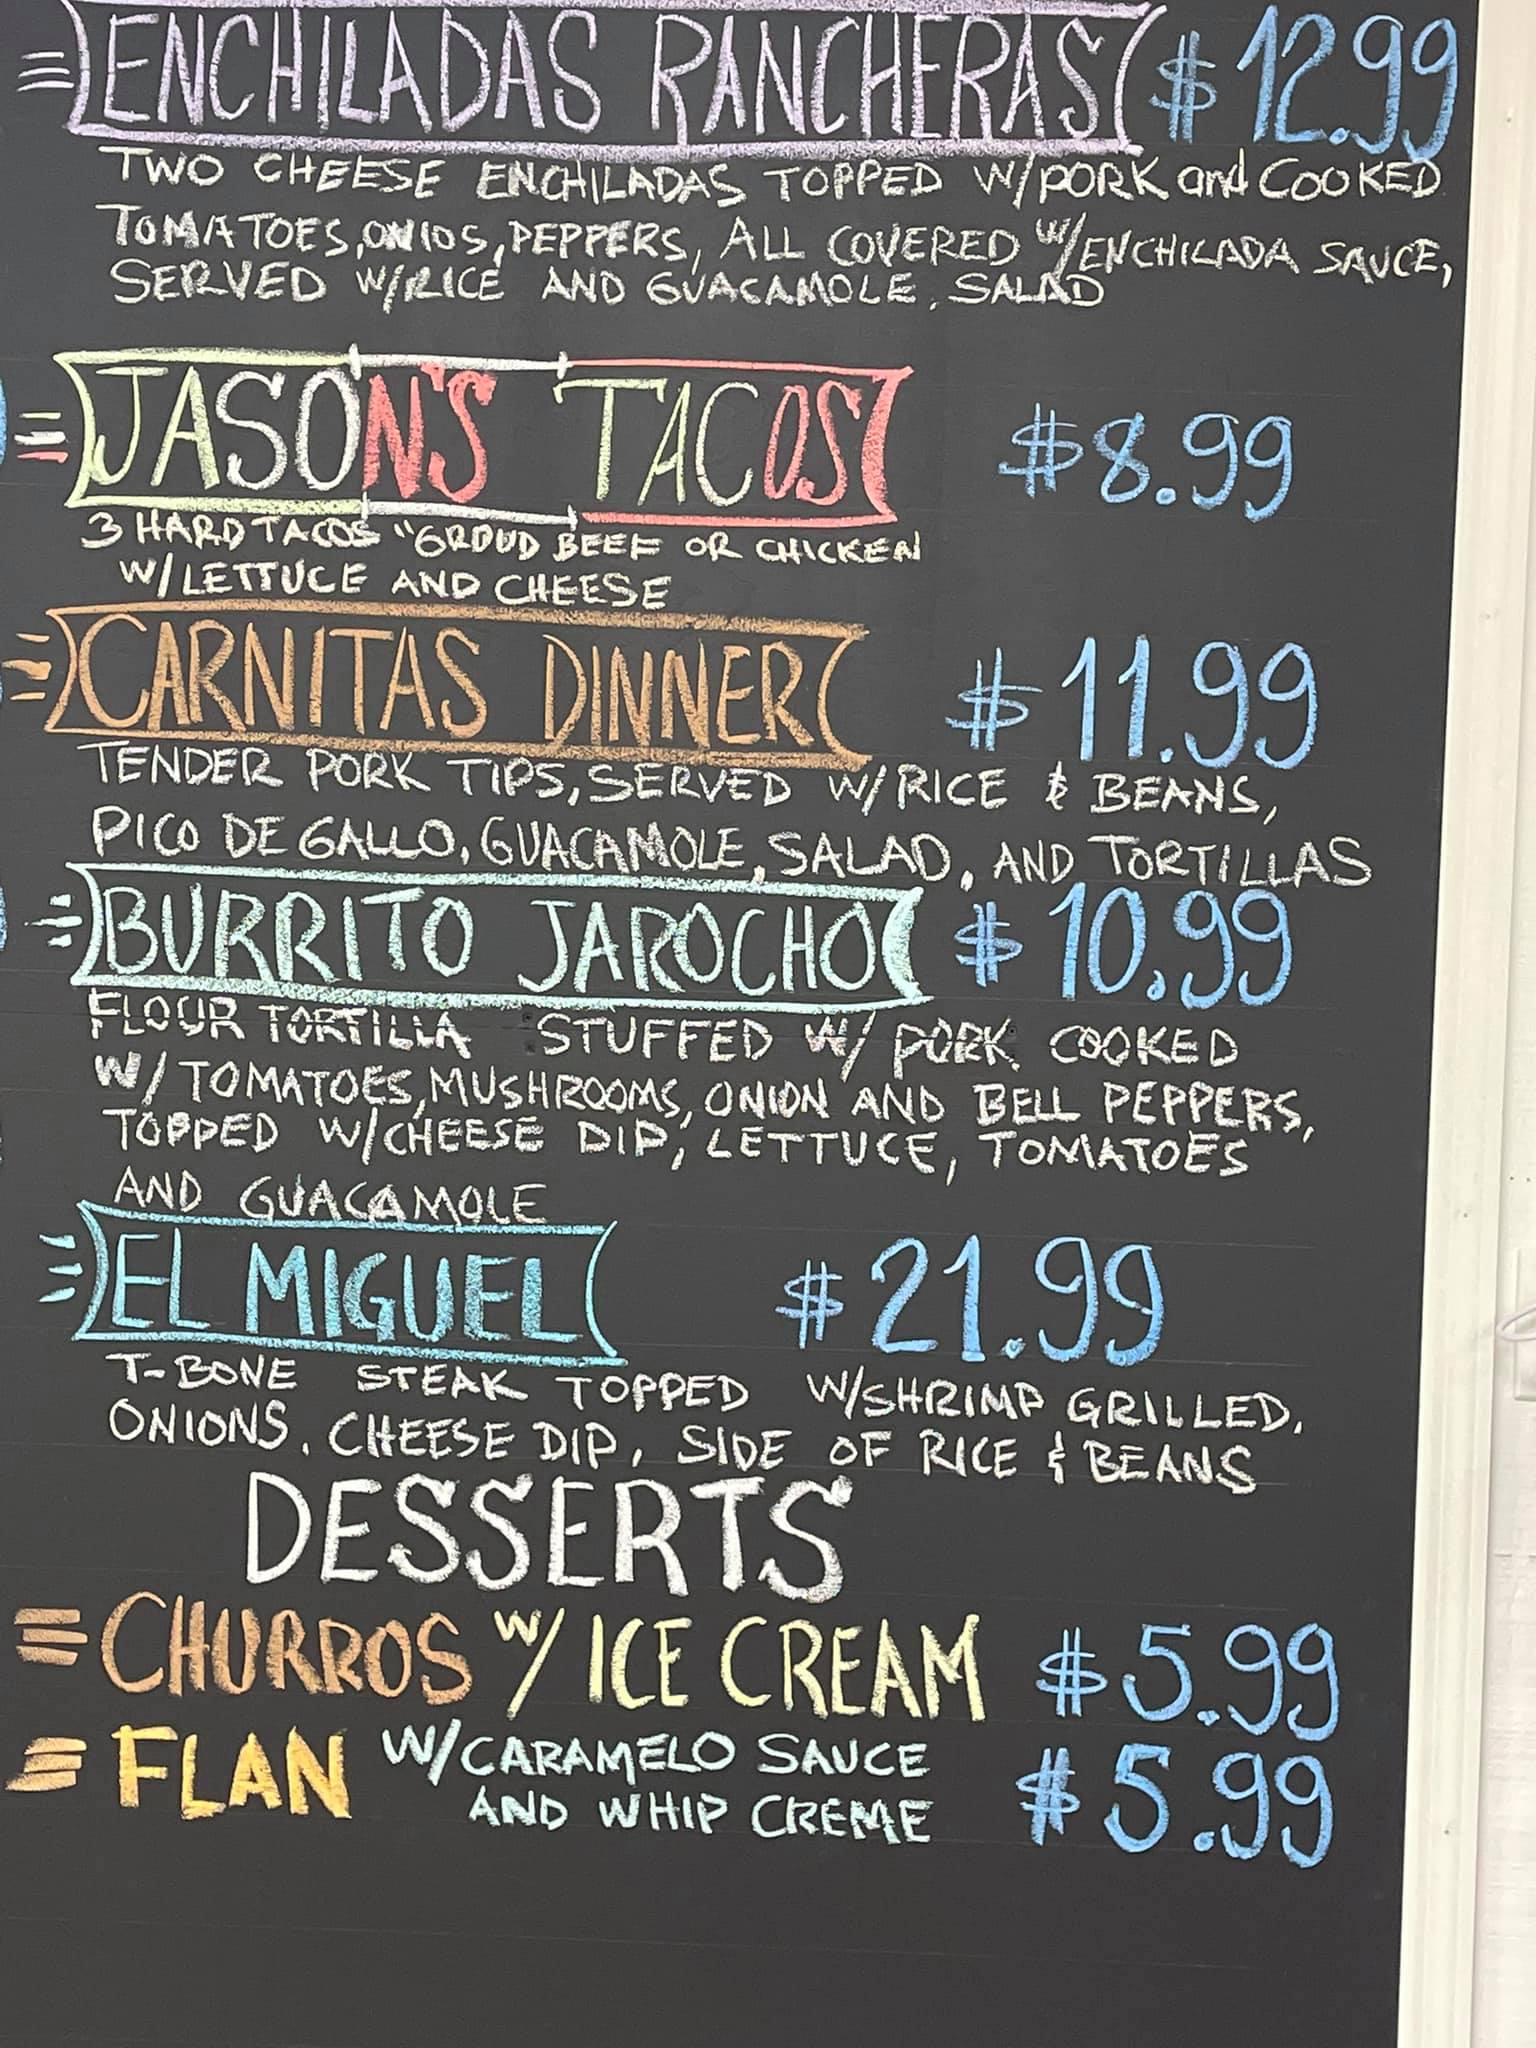 ENCHILADAS RANCHERAS $12.99
TWO CHEESE ENCHILADAS TOPPED W/PORK and COOKED
TOMATOES, ONIOS, PEPPERS, ALL COVERED W/ENCHILADA SAUCE,
SERVED W/RICE AND GUACAMOLE, SALAD
JASON'S TACOS $8.99
3 HARD TACOS "GROUD BEEF OR CHICKEN
W/LETTUCE AND CHEESE
CARNITAS DINNER $11.99
TENDER PORK TIPS, SERVED W/RICE & BEANS,
PICO DE GALLO, GUACAMOLE, SALAD, AND TORTILLAS
BURRITO JAROCHO $10.99
FLOUR TORTILLA STUFFED W/ PORK COOKED
W/TOMATOES, MUSHROOMS, ONION AND BELL PEPPERS,
TOPPED W/CHEESE DIP, LETTUCE, TOMATOES
AND GUACAMOLE
EL MIGUEL $21.99
T-BONE STEAK TOPPED W/SHRIMP GRILLED,
ONIONS, CHEESE DIP, SIDE OF RICE & BEANS
DESSERTS
CHURROS W/ ICE CREAM $5.99
FLAN W/CARAMELO SAUCE
AND WHIP CREME $5.99